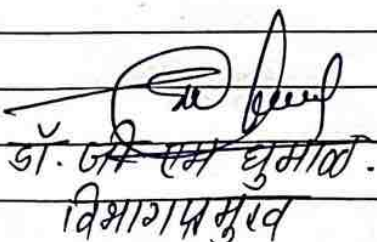 डॉ. जी एम घुमाळे.
विभागप्रमुख